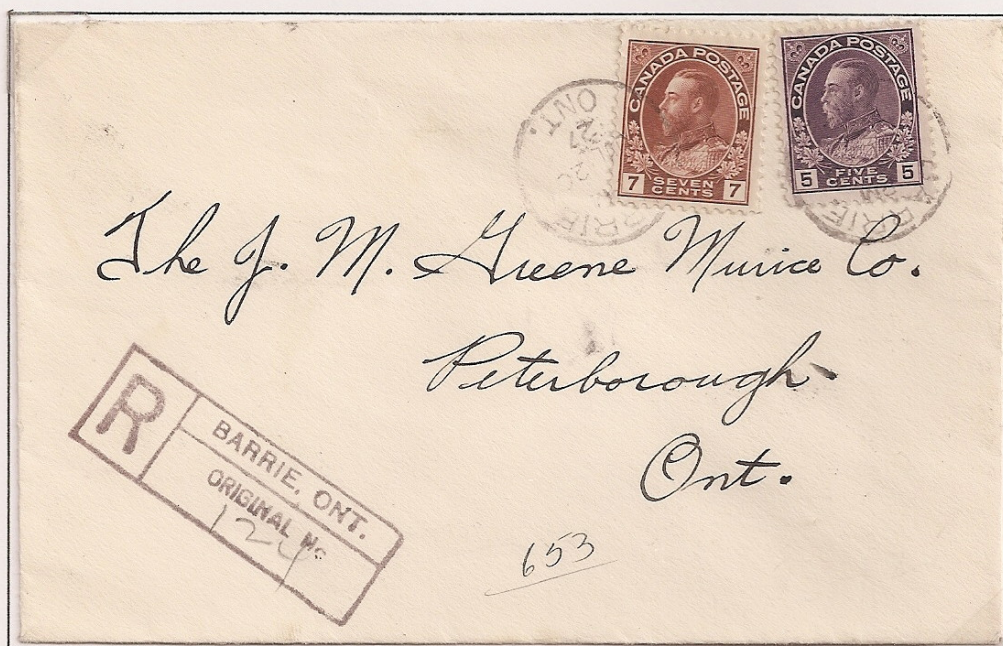 CANADA POSTAGE
7 SEVEN CENTS 7
CANADA POSTAGE
5 FIVE CENTS 5
ONT.
27
The J. M. Greene Murice Co.
Peterborough
Ont.
R
BARRIE, ONT.
ORIGINAL No
124
653